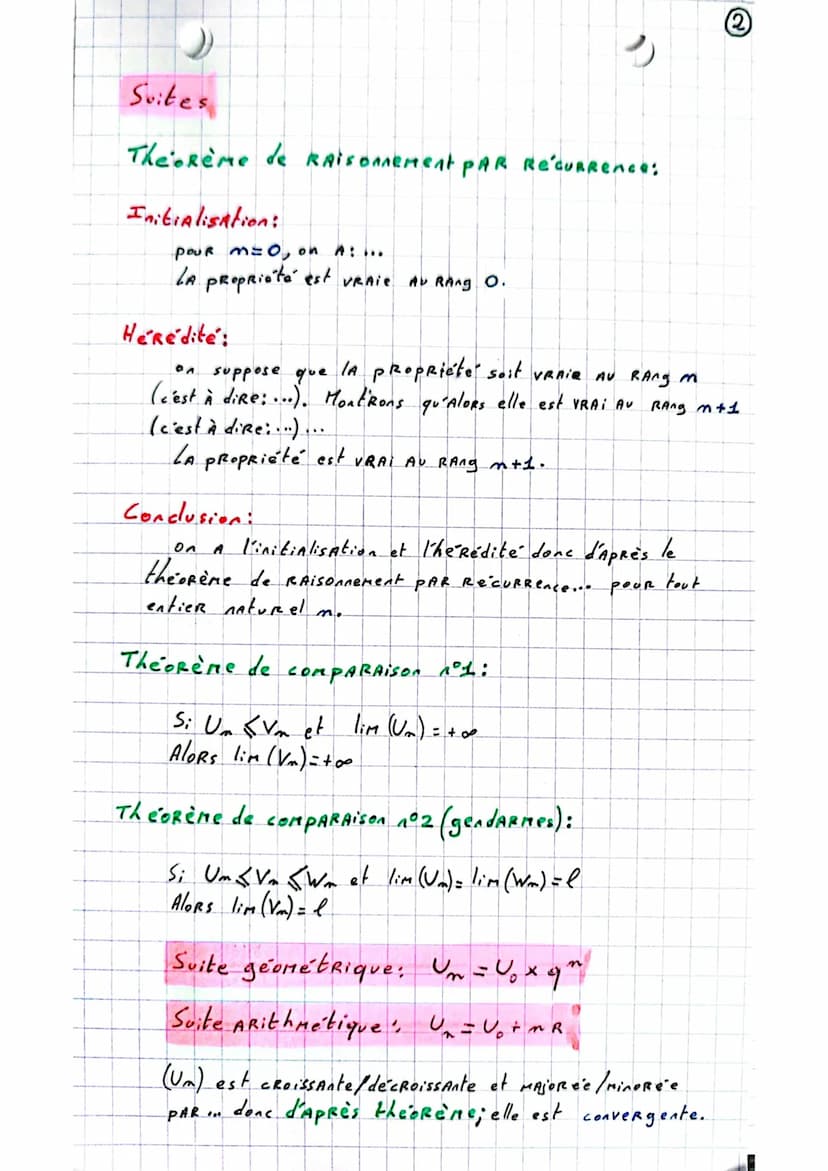 2
Suites
Théorème de raisonnement par récurrence:
Initialisation:
pour n=0, on a: ...
La propriété est vraie au rang 0.
Hérédité:
on suppose que la propriété soit vraie au rang n
(c'est à dire: ...). Montrons qu'alors elle est vrai au rang n+1
(c'est à dire: ...) ...
La propriété est vrai au rang n+1.
Conclusion:
on a l'initialisation et l'hérédité donc d'après le
théorème de raisonnement par récurrence... pour tout
entier naturel n.
Théorème de comparaison n°1:
Si Un ≤ Vn et lim (Un) = +∞
Alors lim (Vn) = +∞
Théorème de comparaison n°2 (gendarmes):
Si Un ≤ Vn ≤ Wn et lim (Un) = lim (Wn) = l
Alors lim (Vn) = l
Suite géométrique: Un = U₀ × qⁿ
Suite arithmétique: Un = U₀ + n R
(Un) est croissante/décroissante et majorée/minorée
par ... donc d'après théorème; elle est convergente.